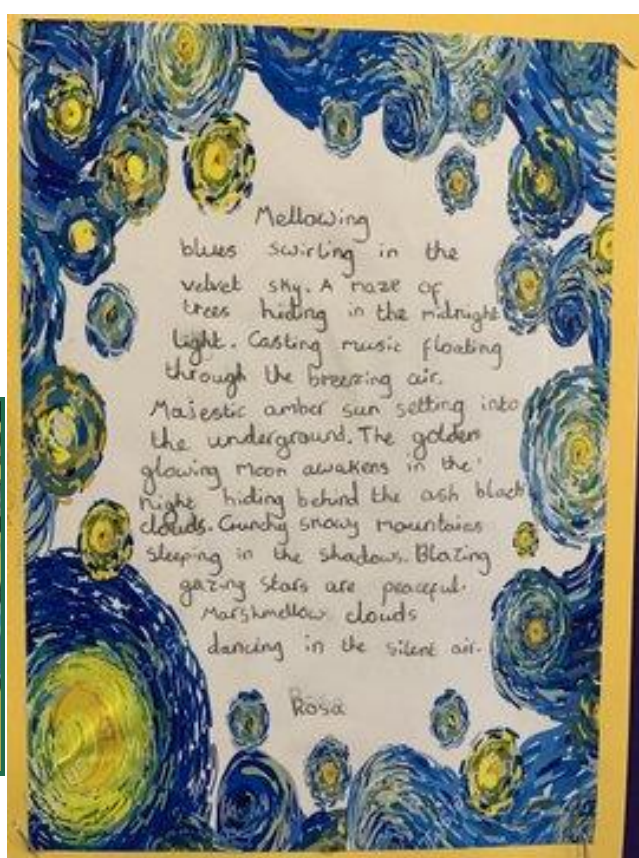 Mellowing
blues swirling in the
velvet sky. A maze of
trees hiding in the midnight
light. Casting music floating
through the breezing air.
Majestic amber sun setting into
the underground. The golden
glowing moon awakens in the
night hiding behind the ash black
clouds. Crunchy snowy mountains
sleeping in the shadows. Blazing
gazing stars are peaceful.
Marshmellow clouds
dancing in the silent air.
Rosa